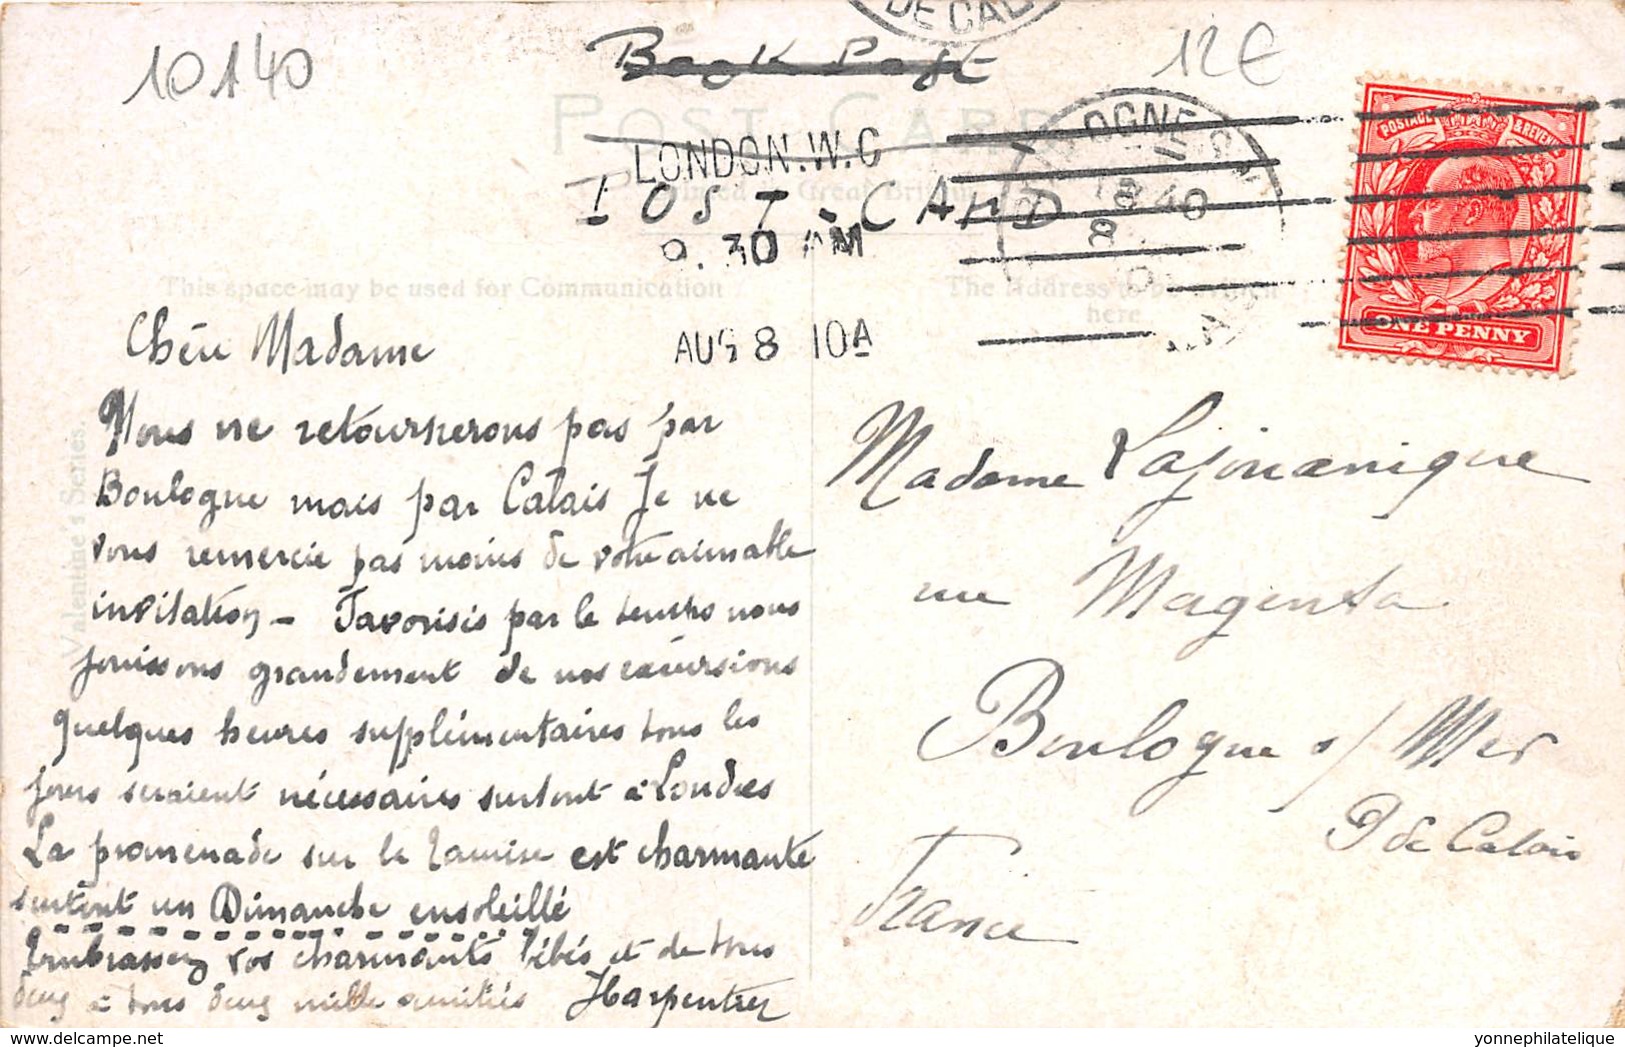 10140
Book Post
12€
DE CAL
POST CARD
LONDON. W.C
Printed in Great Britain
POST CARD
9.30 AM
AUG 8 10A
18 40
8
POSTAGE & REVENUE
ONE PENNY
This space may be used for Communication
The Address to be written
here
Valentine's Series.
Chère Madame
Nous ne retournerons pas par
Boulogne mais par Calais Je ne
vous remercie pas moins de votre aimable
invitation - Favorisés par le temps nous
jouissons grandement de nos excursions
quelques heures supplémentaires tous les
jours seraient nécessaires surtout à Londres
La promenade sur la Tamise est charmante
surtout un Dimanche ensoleillé
Embrassez vos charmants bébés et de nous
deux à vous deux mille amitiés
Madame
rue Magenta
Boulogne s/ Mer
P de Calais
France
yonnephilatelique